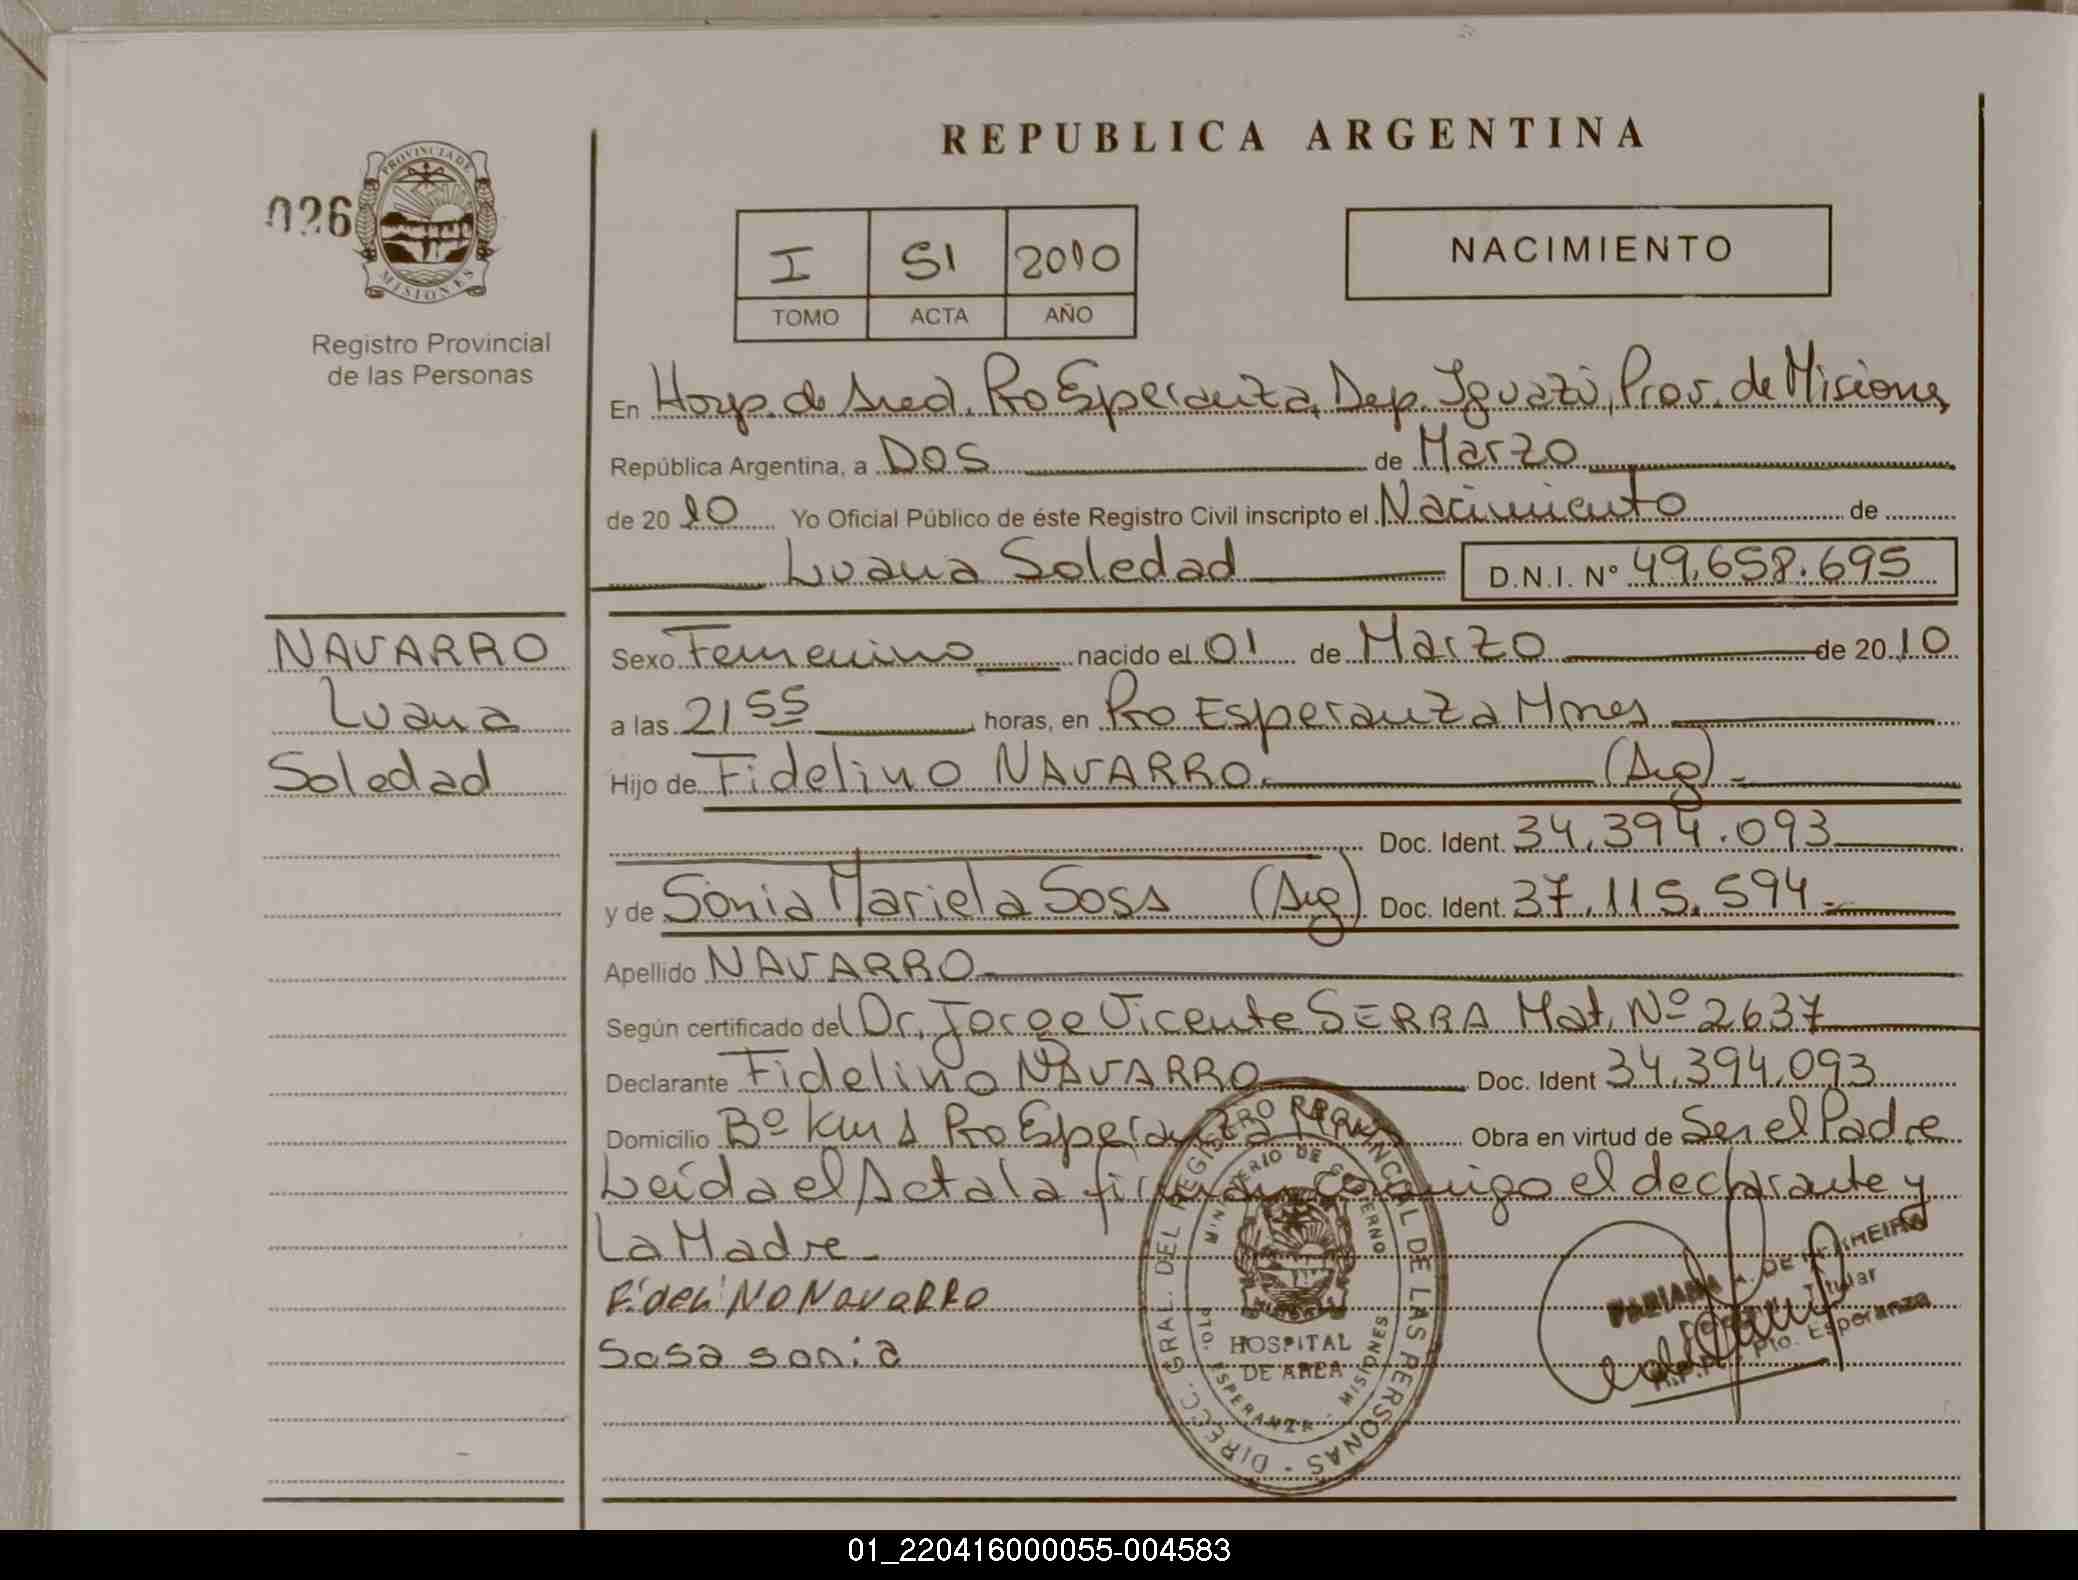 REPUBLICA ARGENTINA
026
PROVINCIA DE
MISIONES
Registro Provincial
de las Personas
I 51 2010
TOMO ACTA AÑO
NACIMIENTO
En Hosp. de Area. Pto Esperanza, Dep. Iguazú, Prov. de Misiones
República Argentina, a DOS de Marzo
de 20 10 Yo Oficial Público de éste Registro Civil inscripto el Nacimiento de
Luana Soledad D.N.I. N° 49.658.695
NAVARRO
Luana
Soledad
Sexo Femenino nacido el 01 de Marzo de 20 10
a las 21 55 horas, en Pto Esperanza Mnes
Hijo de Fidelino NAVARRO. (Arg).-
Doc. Ident. 34.394.093
y de Sonia Mariela Sosa (Arg) Doc. Ident. 37.115.594.-
Apellido NAVARRO
Según certificado del Dr. Jorge Vicente SERRA Mat. Nº 2637
Declarante Fidelino NAVARRO Doc. Ident 34.394.093
Domicilio Bº Km 1 Pto Esperanza Mnes Obra en virtud de Ser el Padre
Leída el Acta la firman conmigo el declarante y
La Madre.-
Fideli NO NavaRRo
Sosa sonia
DIRECC. GRAL. DEL REGISTRO PROVINCIAL DE LAS PERSONAS
MINISTERIO DE GOBIERNO
HOSPITAL
DE AREA
PTO. ESPERANZA - MISIONES
Titular
Pto. Esperanza
01_220416000055-004583